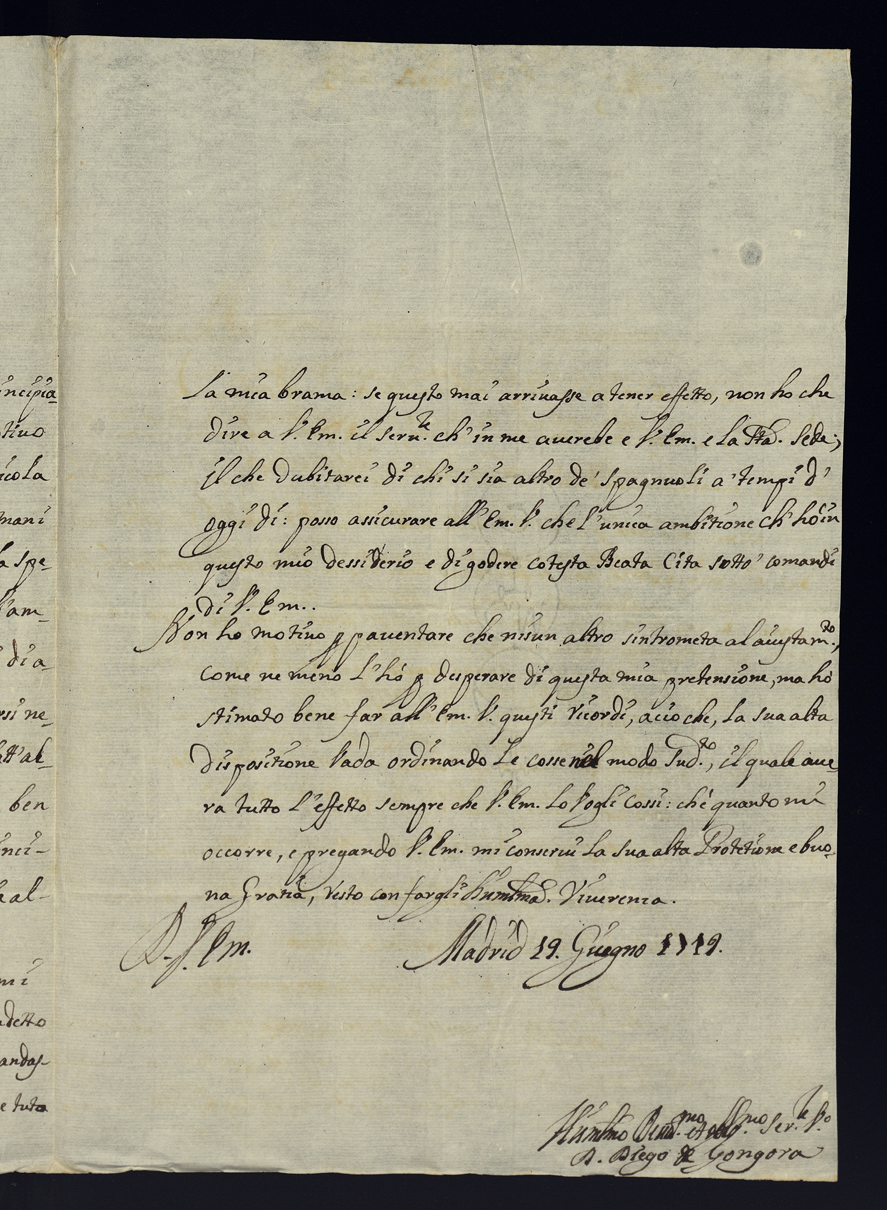 incipia-
la mia brama: se questo mai arrivasse a tener effetto, non ho che
tivo
dire a V. Em. il serv.te ch' in me averebe e V. Em. e la Sta. Sede;
ico la
il che dubitarei di chi si sia altro de' Spagnuoli a' tempi d'
mani
oggi dì: posso assicurare all' Em. V. che l'unica ambitione ch' hò in
a spe-
questo mio dessiderio e di godere cotesta Beata Cita sotto' comandi
di V. Em..
Non ho motivo p paventare che nisun altro sintrometa al aiustam.to,
di a-
come ne meno l'hò p desperare di questa mia pretensione, ma hò
rsi ne-
stimato bene far all' Em. V. questi ricordi, acio che, la sua alta
dispositione Vada ordinando le cosse nel modo Sud.to, il quale ave-
ben
ra tutto l'effetto sempre che V. Em. lo Vogli Cossi: ch'è quanto mi
nci-
occorre, e pregando V. Em. mi conservi la sua alta Protetione e buo-
a al-
na Gratia, resto con fargli Riverenza.
V. Em. Madrid 19. Giugno 1719.
mi
detto
andas-
e tuta
Ser.te V.o
D. Diego de Gongora